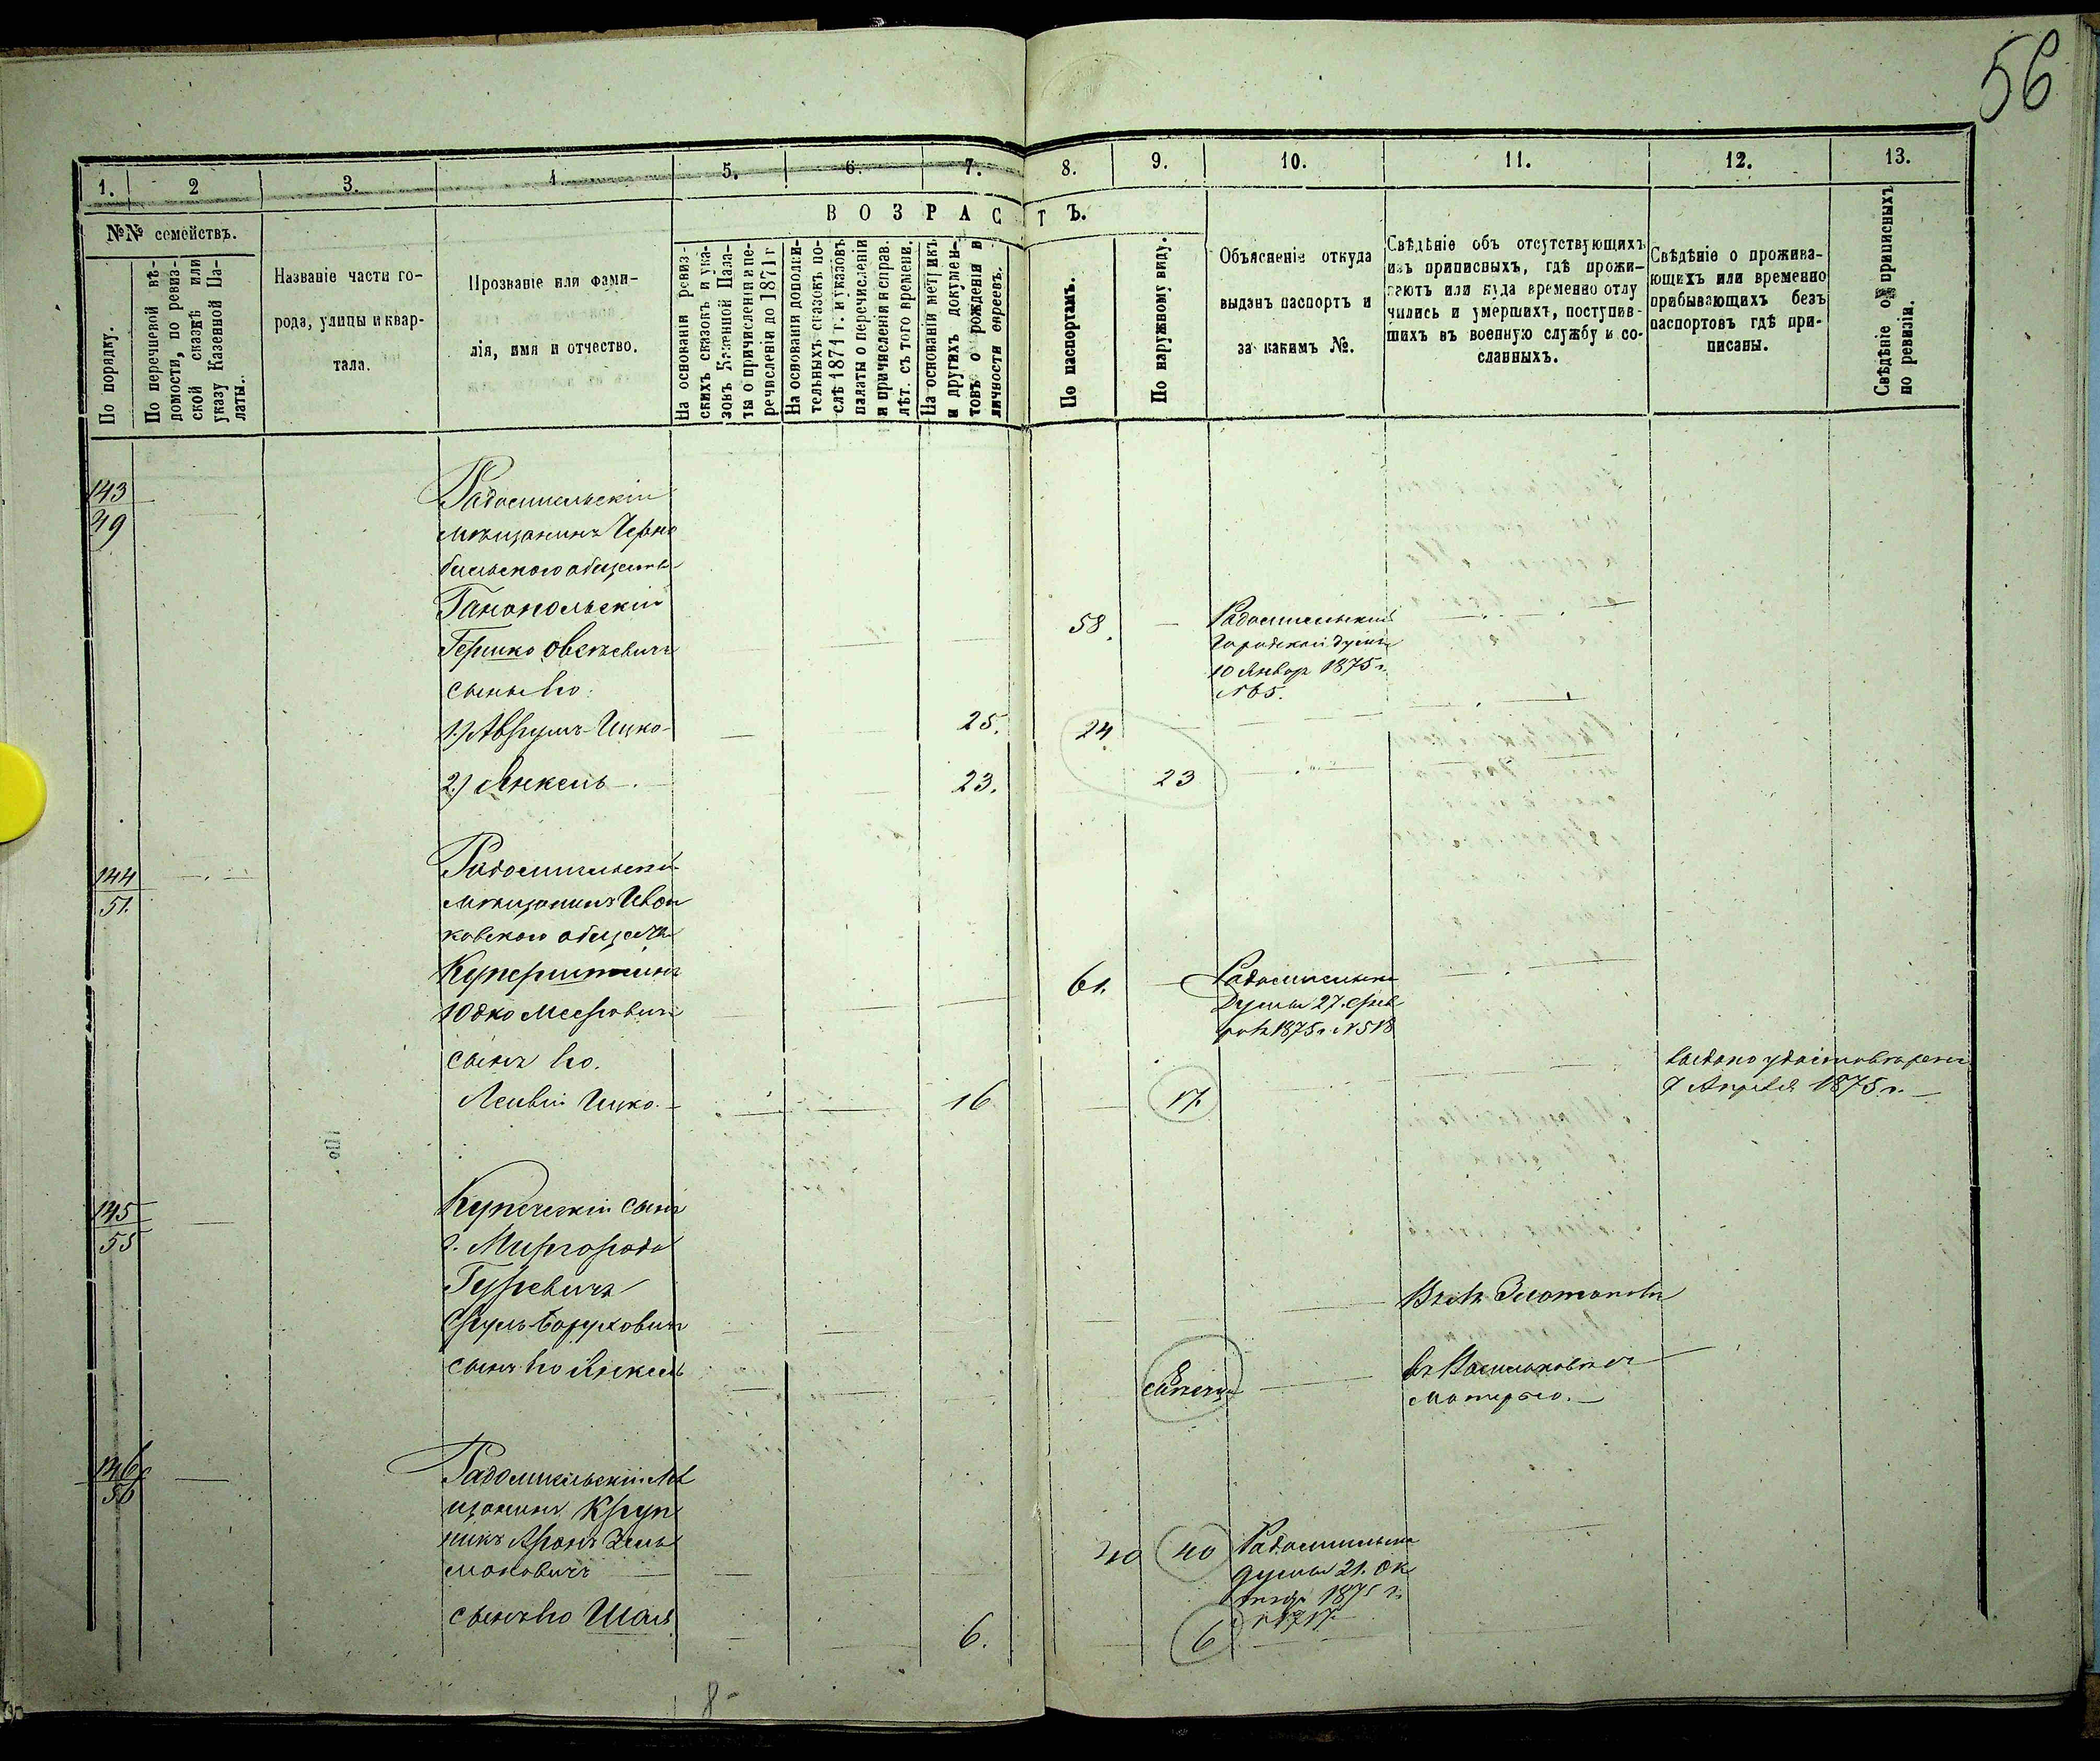 56
1. 2 3. 4. 5. 6. 7. 8. 9. 10. 11. 12. 13.
ВОЗРАСТЪ.
№№ семействъ.
По порядку.
По перечневой вѣ-
домости, по ревиз-
ской сказкѣ или
указу Казенной Па-
латы.
Названіе части го-
рода, улицы и квар-
тала.
Прозваніе или фами-
лія, имя и отчество.
На основаніи ревиз-
скихъ сказокъ и ука-
зовъ Казенной Пала-
ты о причисленіи и пе-
речисленіи до 1871 г.
На основаніи дополни-
тельныхъ сказокъ по-
слѣ 1871 г. и указовъ
палаты о перечисленіи
и причисленіи и справ.
лѣт. съ того времени.
На основаніи метрикъ
и другихъ докумен-
товъ о рожденіи и
личности евреевъ.
По паспортамъ.
По наружному виду.
Объясненіе откуда
выданъ паспортъ и
за какимъ №.
Свѣдѣніе объ отсутствующихъ
изъ приписныхъ, гдѣ прожи-
ваютъ или куда временно отлу
чились и умершихъ, поступив-
шихъ въ военную службу и со-
сланныхъ.
Свѣдѣніе о прожива-
ющихъ или временно
прибывающихъ безъ
паспортовъ гдѣ при-
писаны.
Свѣдѣніе о приписныхъ
по ревизіи.
143
49
Радомысльскій
мѣщанинъ Черно
быльского общества
Ганопольскій
Гершко Овсѣевичъ
58.
Радомысльской
Городской Думы
10 Январ 1875 г.
№ 65.
сыны его:
1.) Аврумъ-Ицко- 25. 24
2.) Янкель 23. 23
144
51.
Радомысльскій
мѣщанинъ Иван
ковского общества
Куперштейнъ
Юдко Мееровичъ
61.
Радомысльск
Думы 27. Фев
1875 г. № 518
сынъ его.
Лейвій Ицко. 16 17.
выдано удостоверен
7 Апрѣля 1875 г.
145
55
Купеческій сынъ
г. Миргорода
Гуревичъ
Сруль Боруховичъ
Въ м. Златополѣ
сынъ его Янкель
8
въ Васильковѣ съ
матерью.
146
56
Радомысльскій мѣ
щанинъ Круп
никъ Аронъ Зель
мановичъ
40 40
Радомысльск
думы 21. Ок
тяб. 1875 г.
сынъ его Шая 6. 6
8